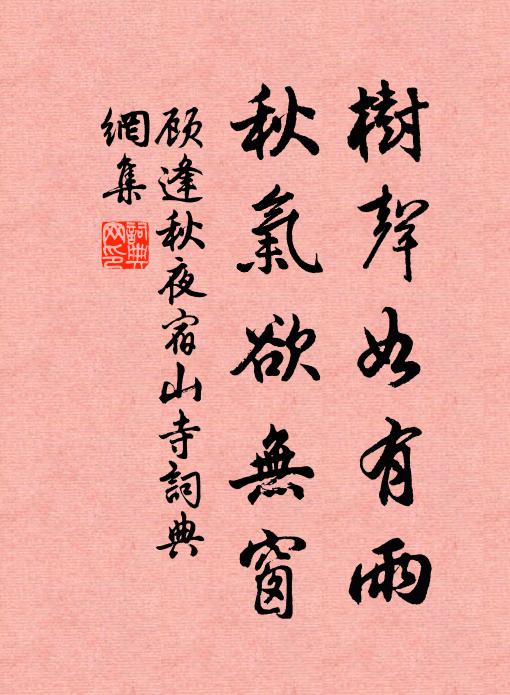 樹聲如有雨
秋氣欲無窗
顾逢秋夜宿山寺詞典
網集
詞典
网印